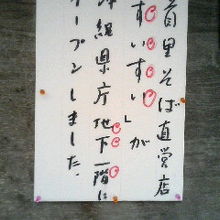 首里そば直営店
すいすい」が
沖縄県庁地下一階に
オープンしました。